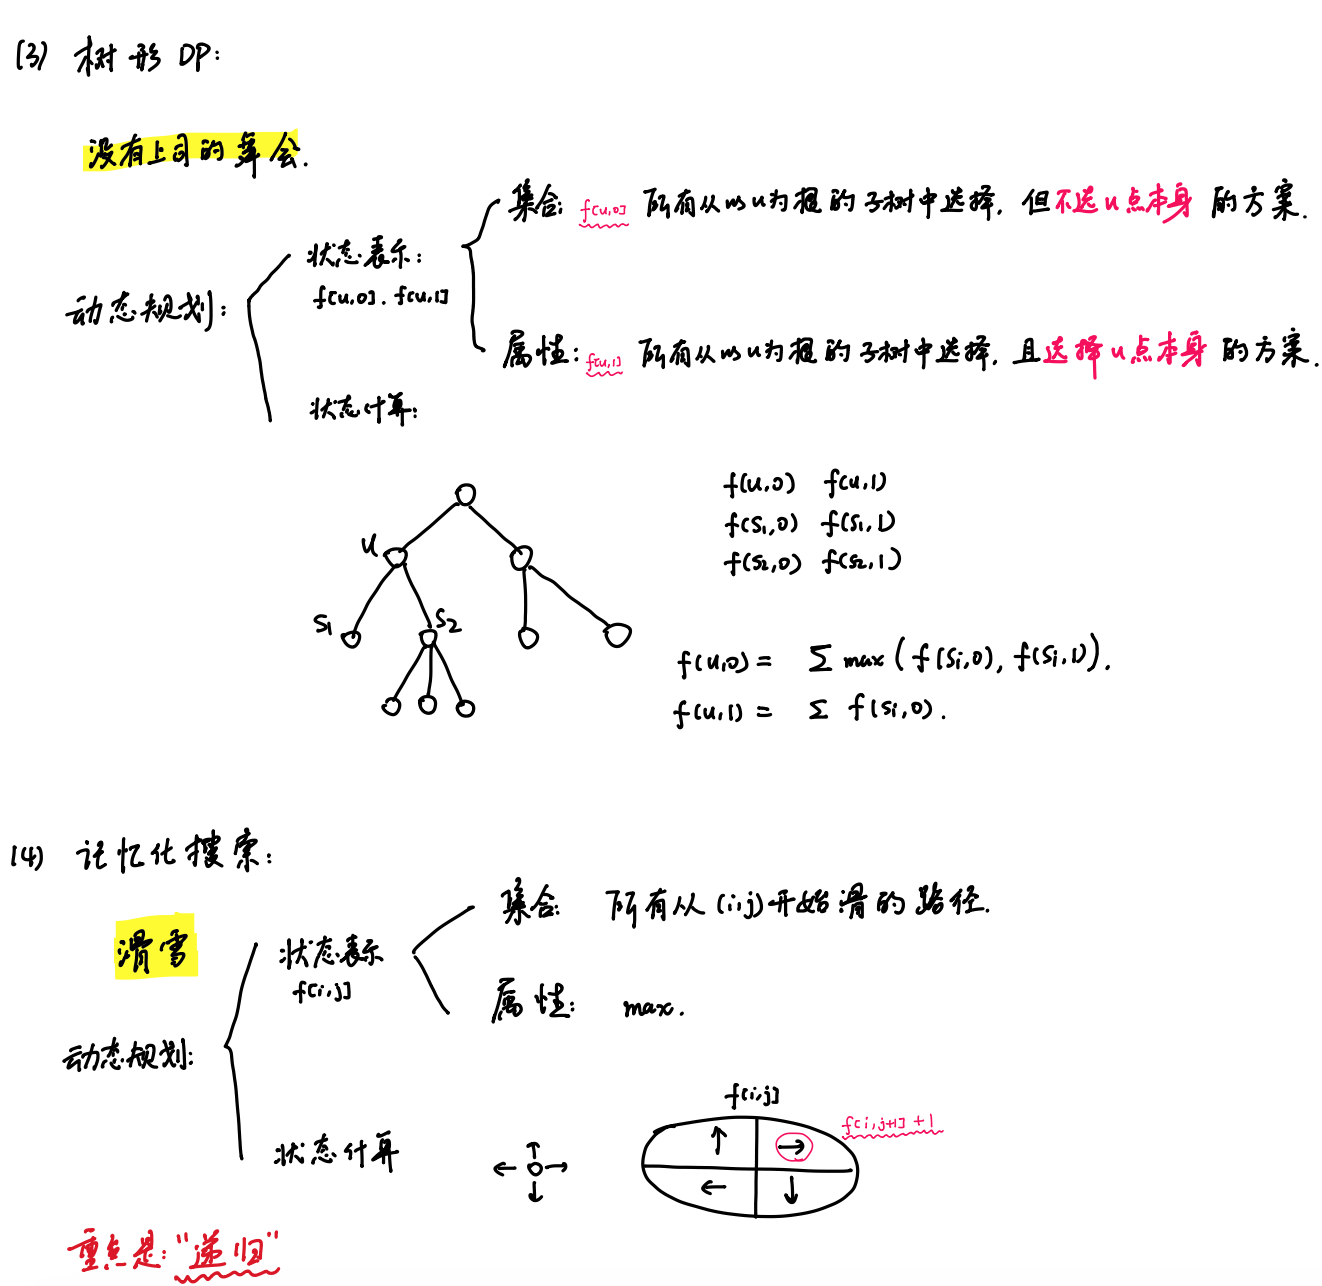 (3) 树形 DP:
没有上司的舞会.
集合: f[u,0] 所有从以u为根的子树中选择, 但不选u点本身 的方案.
状态表示:
f[u,0]. f[u,1]
动态规划:
属性: f[u,1] 所有从以u为根的子树中选择, 且选择u点本身 的方案.
状态计算:
f(u,0) f(u,1)
f(s1,0) f(s1,1)
f(s2,0) f(s2,1)
u
s1 s2
f(u,0) = Σ max ( f(si,0), f(si,1) ).
f(u,1) = Σ f(si,0).
(4) 记忆化搜索:
集合: 所有从(i,j)开始滑的路径.
滑雪
状态表示
f[i,j]
属性: max.
动态规划:
f[i,j]
f[i,j+1] +1
状态计算
↑
← →
↓
↑ →
← ↓
重点是:“递归”